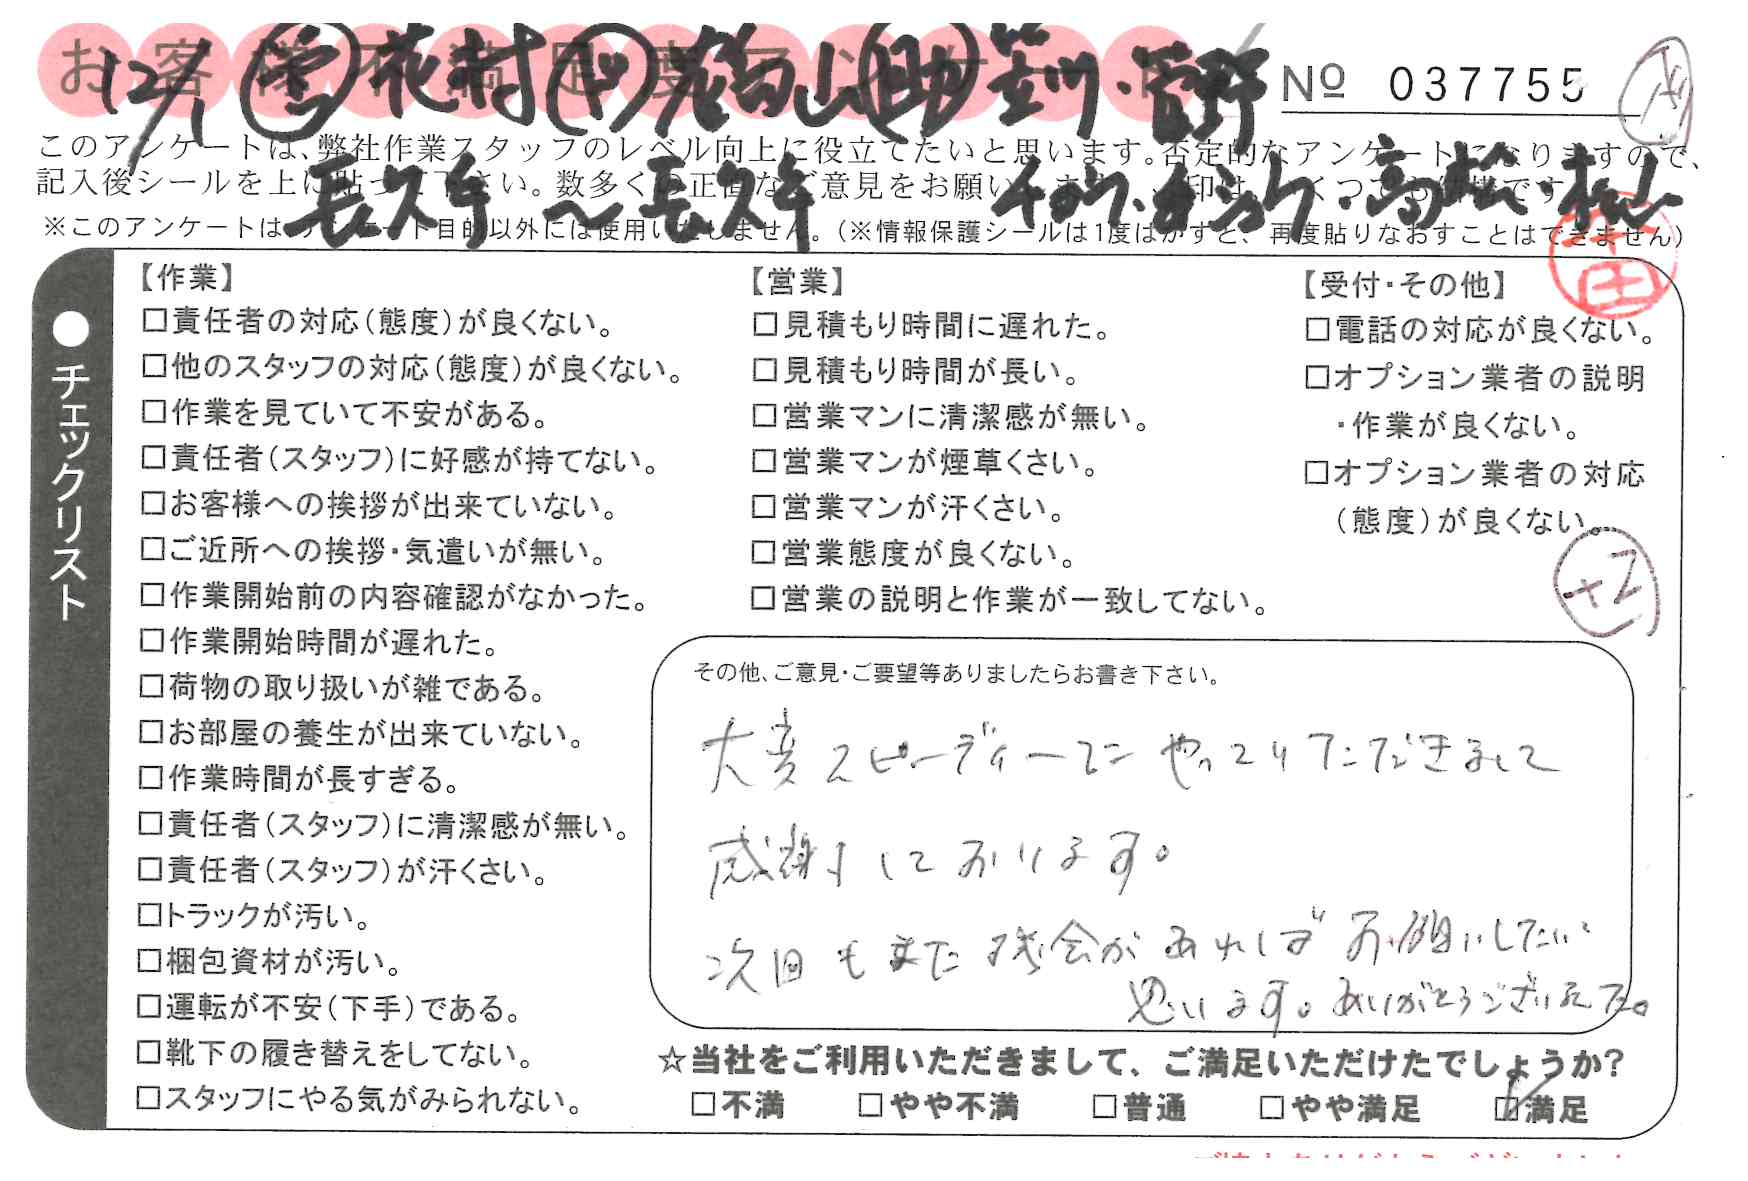 お客様不満足度アンケート
12/1 営 花村 ド 山 助 笠川・菅野
No 037755
このアンケートは、弊社作業スタッフのレベル向上に役立てたいと思います。否定的なアンケートになりますので、
記入後シールを上に貼って下さい。数多くの正直なご意見をお願いします。
長久手〜長久手
※このアンケートは、アンケート目的以外には使用いたしません。(※情報保護シールは1度はがすと、再度貼りなおすことはできません)
本田
●チェックリスト
【作業】
□責任者の対応(態度)が良くない。
□他のスタッフの対応(態度)が良くない。
□作業を見ていて不安がある。
□責任者(スタッフ)に好感が持てない。
□お客様への挨拶が出来ていない。
□ご近所への挨拶・気遣いが無い。
□作業開始前の内容確認がなかった。
□作業開始時間が遅れた。
□荷物の取り扱いが雑である。
□お部屋の養生が出来ていない。
□作業時間が長すぎる。
□責任者(スタッフ)に清潔感が無い。
□責任者(スタッフ)が汗くさい。
□トラックが汚い。
□梱包資材が汚い。
□運転が不安(下手)である。
□靴下の履き替えをしてない。
□スタッフにやる気がみられない。
【営業】
□見積もり時間に遅れた。
□見積もり時間が長い。
□営業マンに清潔感が無い。
□営業マンが煙草くさい。
□営業マンが汗くさい。
□営業態度が良くない。
□営業の説明と作業が一致してない。
【受付・その他】
□電話の対応が良くない。
□オプション業者の説明
・作業が良くない。
□オプション業者の対応
(態度)が良くない。
+2
その他、ご意見・ご要望等ありましたらお書き下さい。
大変スピーディーにやっていただきまして
感謝しております。
次回もまた機会があればお願いしたいと
思います。ありがとうございました。
☆当社をご利用いただきまして、ご満足いただけたでしょうか?
□不満 □やや不満 □普通 □やや満足 ☑満足